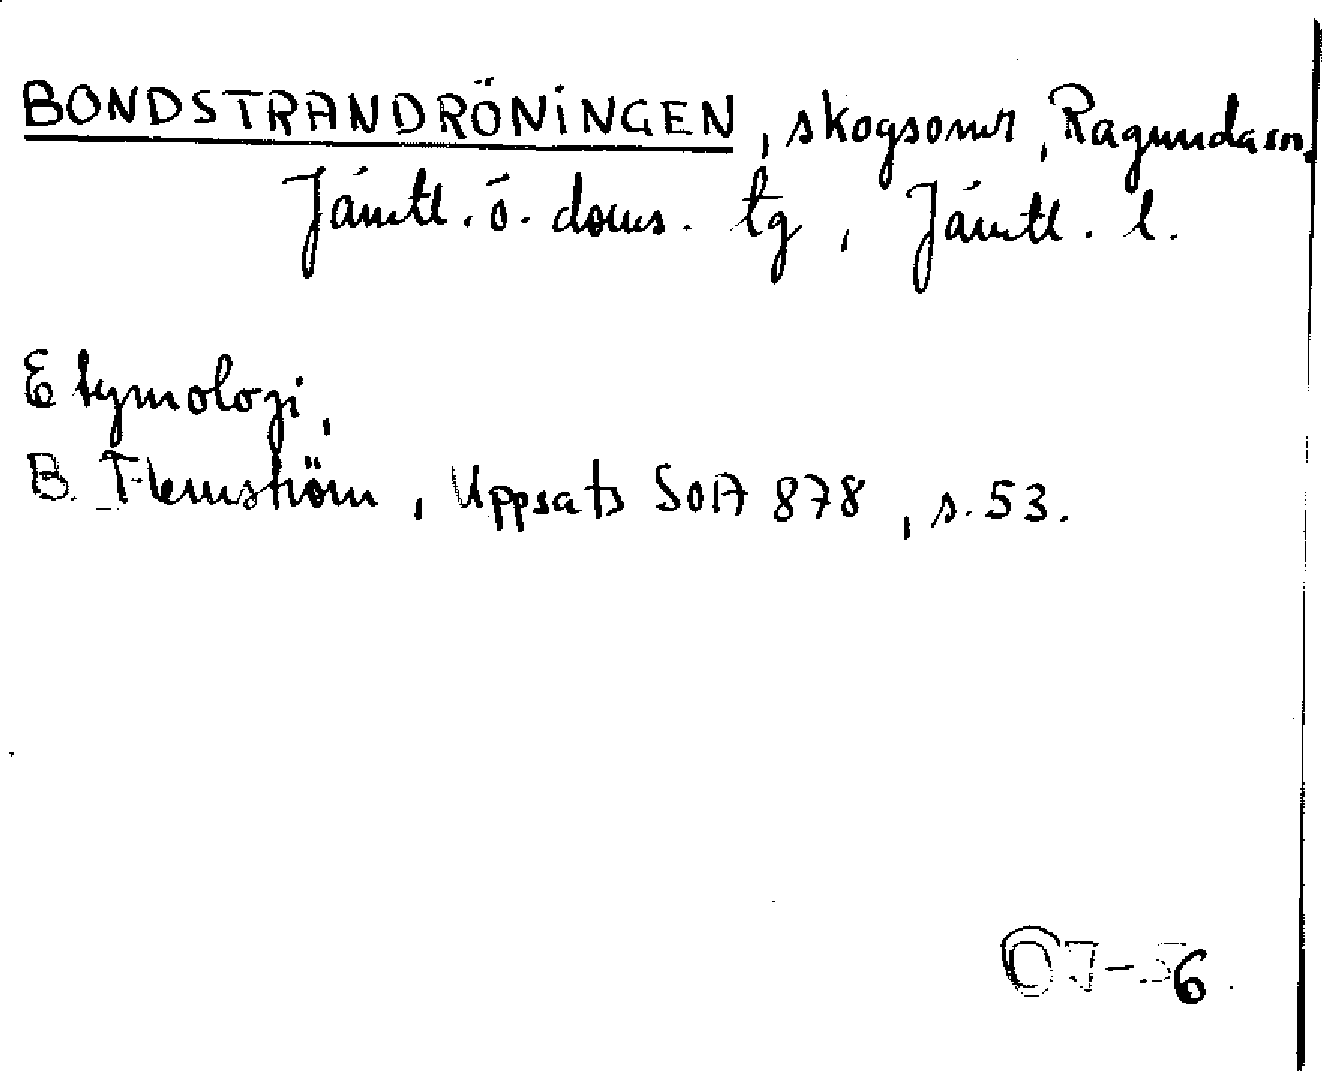 BONDSTRANDRÖNINGEN, skogsområde, Ragunda sn,
Jämtl. ö. doms. tg, Jämtl. l.
Etymologi,
B. Flemström, Uppsats SOA 878, s. 53.